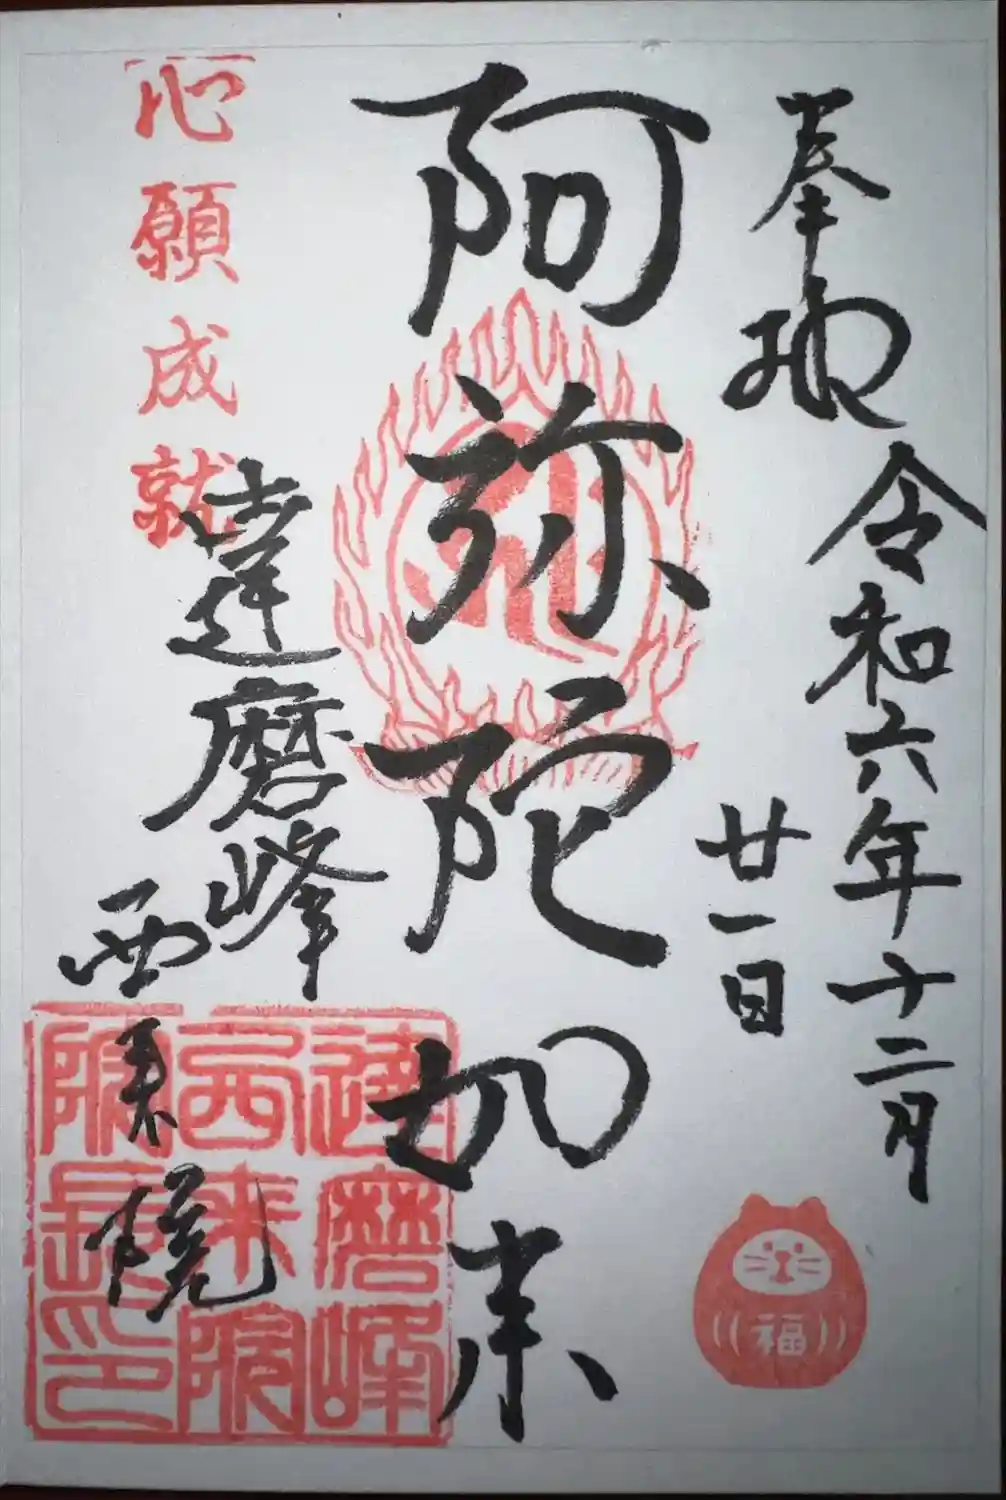 奉拝
令和六年十二月
廿一日
阿弥陀如来
心願成就
達磨峰
西来院
達磨峰
西来院
院長之印
福